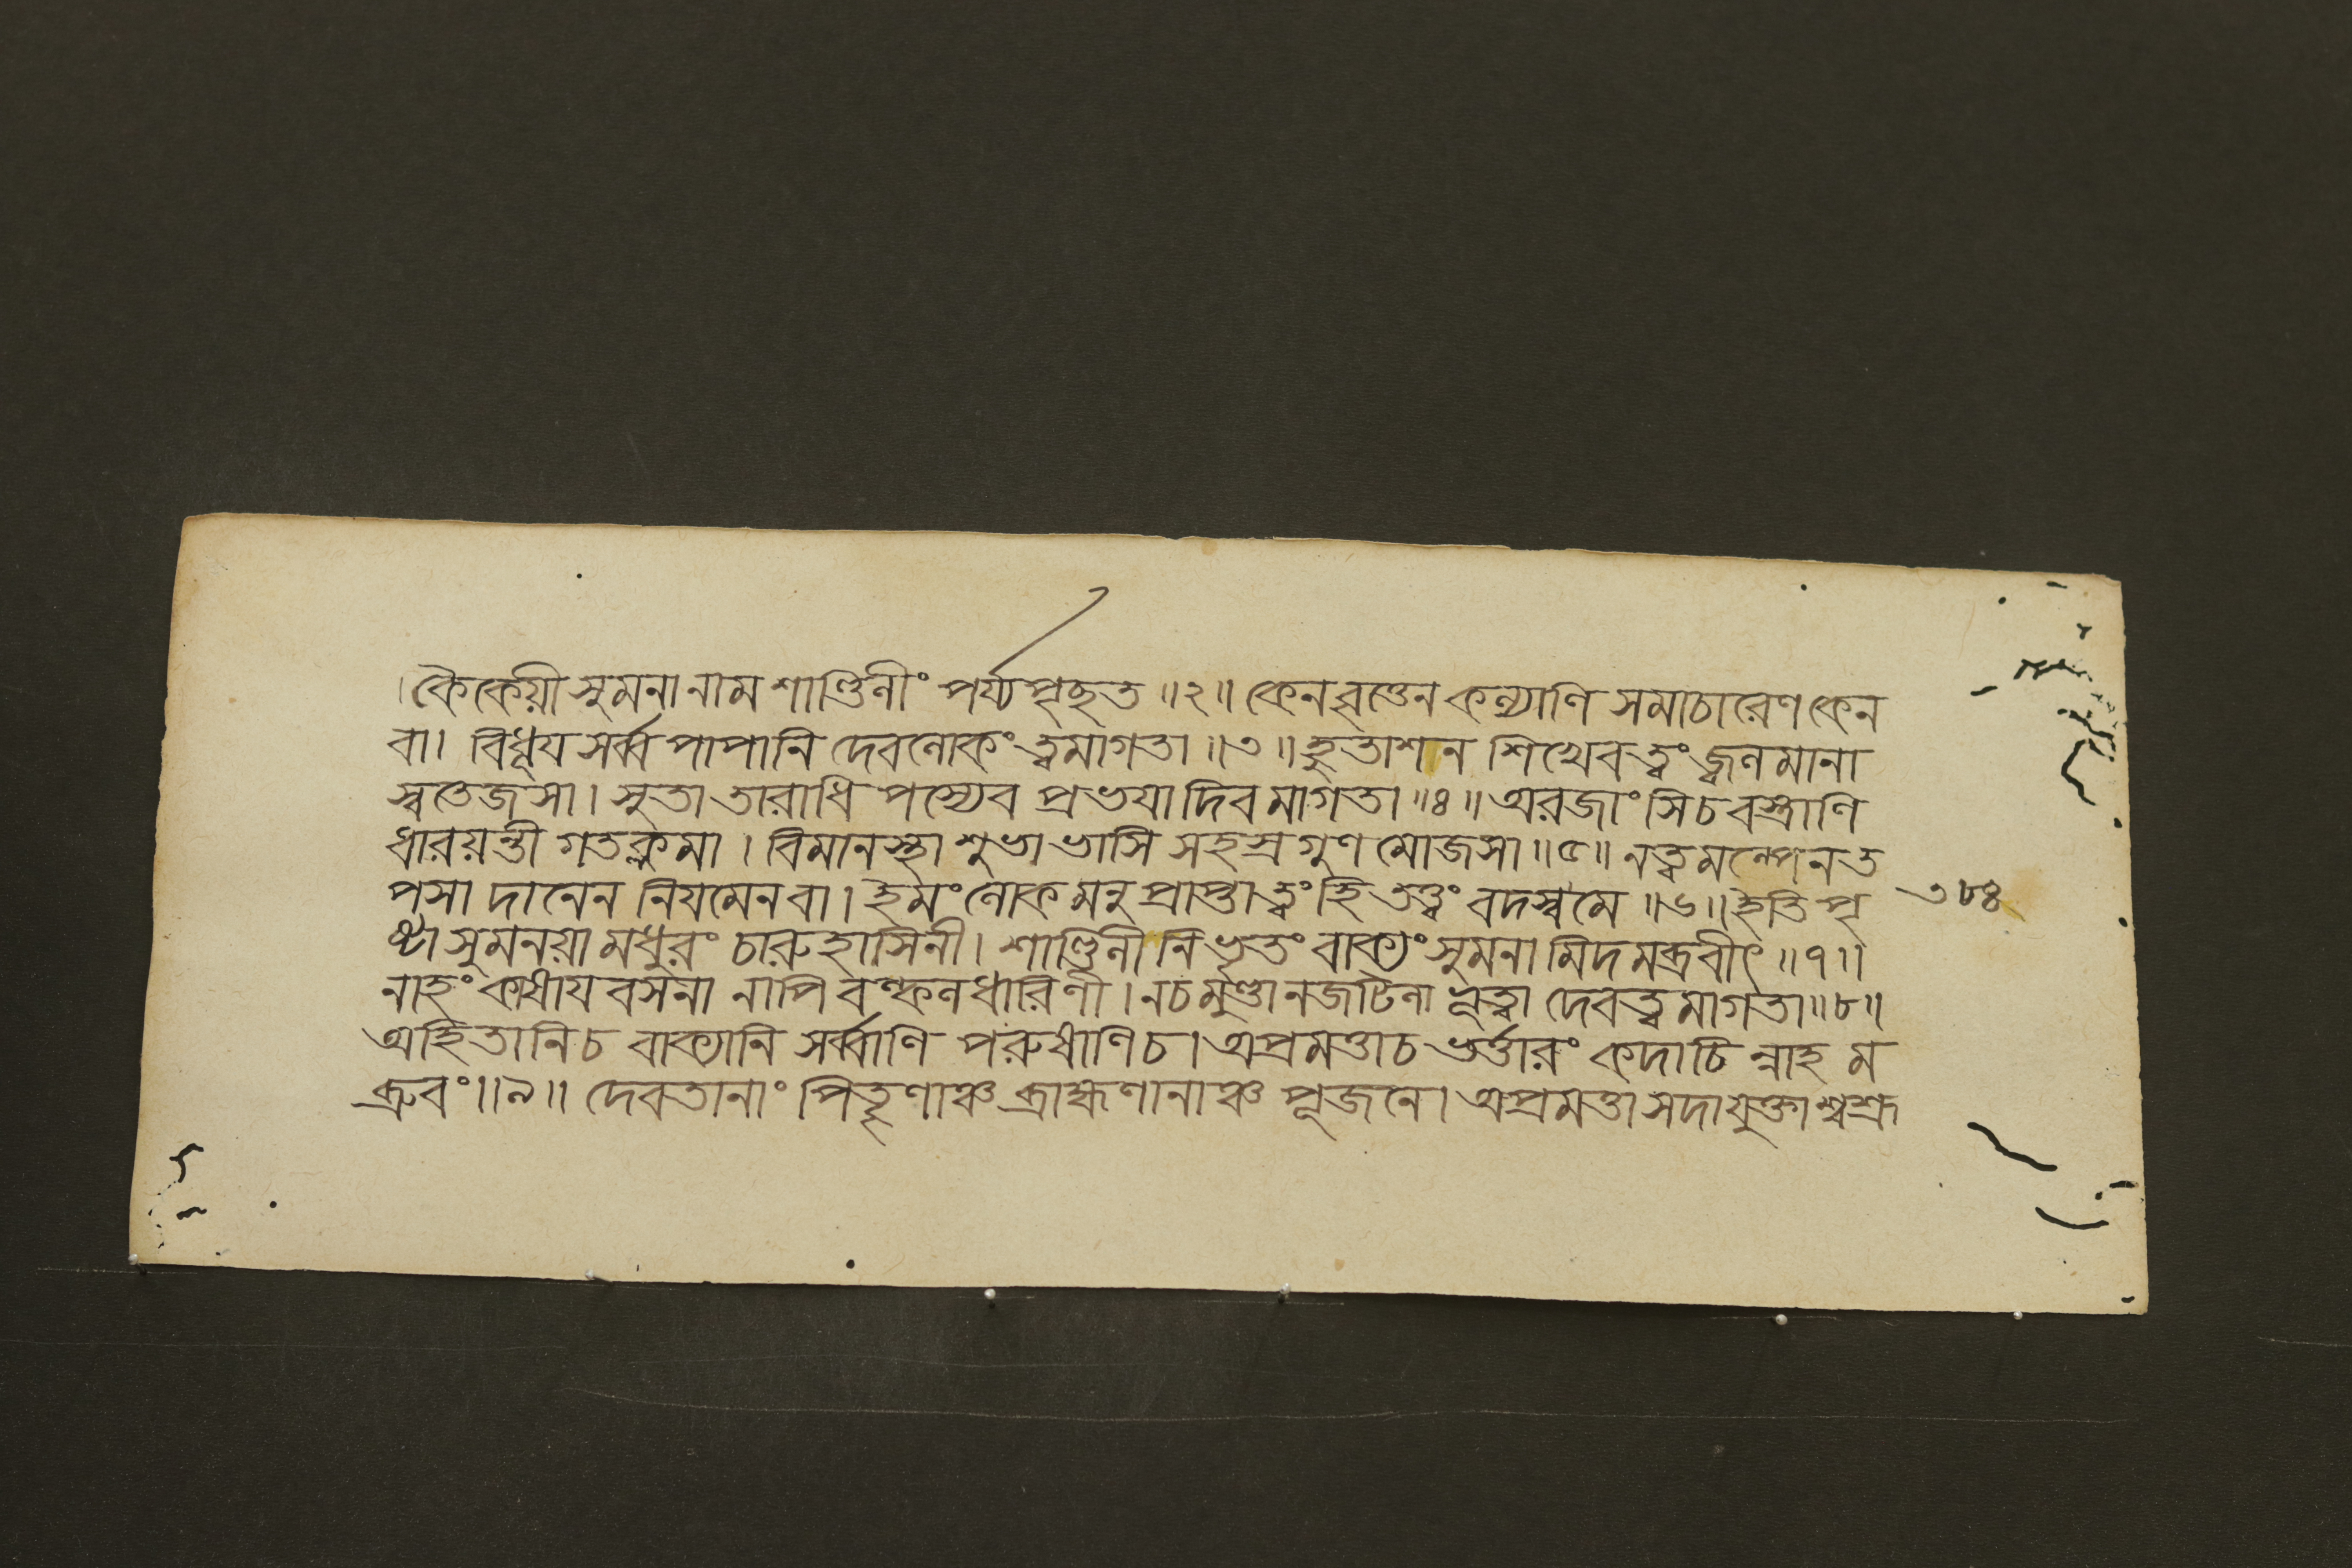 । কৈকেয়ী সুমনা নাম শাণ্ডিলীং পর্য্যপৃছত ॥২॥ কেন বৃত্তেন কল্যাণি সমাচারেণ কেন
বা। বিধূয সর্ব্ব পাপানি দেবলোকং ত্বমাগতা ॥৩॥ হুতাশন শিখেব ত্বং জ্বলমানা
স্বতেজসা। সুতা তারাধি পস্যেব প্রভযা দিবমাগতা ॥৪॥ অরজাংসি চ বস্ত্রাণি
ধারয়ন্তী গতক্লমা । বিমানস্থা শুভা ভাসি সহস্র গুণ মোজসা ॥৫॥ ন ত্বমল্পেন ত
পসা দানেন নিযমেন বা। ইমং লোক মনু প্রাপ্তা ত্বং হি তত্ত্বং বদস্ব মে ॥৬॥ ইতি পৃ
৩৮৪
ষ্টা সুমনয়া মধুরং চারুহাসিনী। শাণ্ডিলী নিভৃতং বাক্যং সুমনা মিদমব্রবীৎ ॥৭॥
নাহং কাষায বসনা নাপি বল্কলধারিণী। ন চ মুণ্ডা ন জটিলা ভূত্বা দেবত্বমাগতা ॥৮॥
অহিতানি চ বাক্যানি সর্ব্বাণি পরুষাণি চ। অপ্রমত্তা চ ভর্ত্তারং কদাচি ন্নাহ ম
ব্রুবং ॥৯॥ দেবতানাং পিতৃণাঞ্চ ব্রাহ্মণানাঞ্চ পূজনে। অপ্রমত্তা সদাযুক্তা শ্বশ্রূ